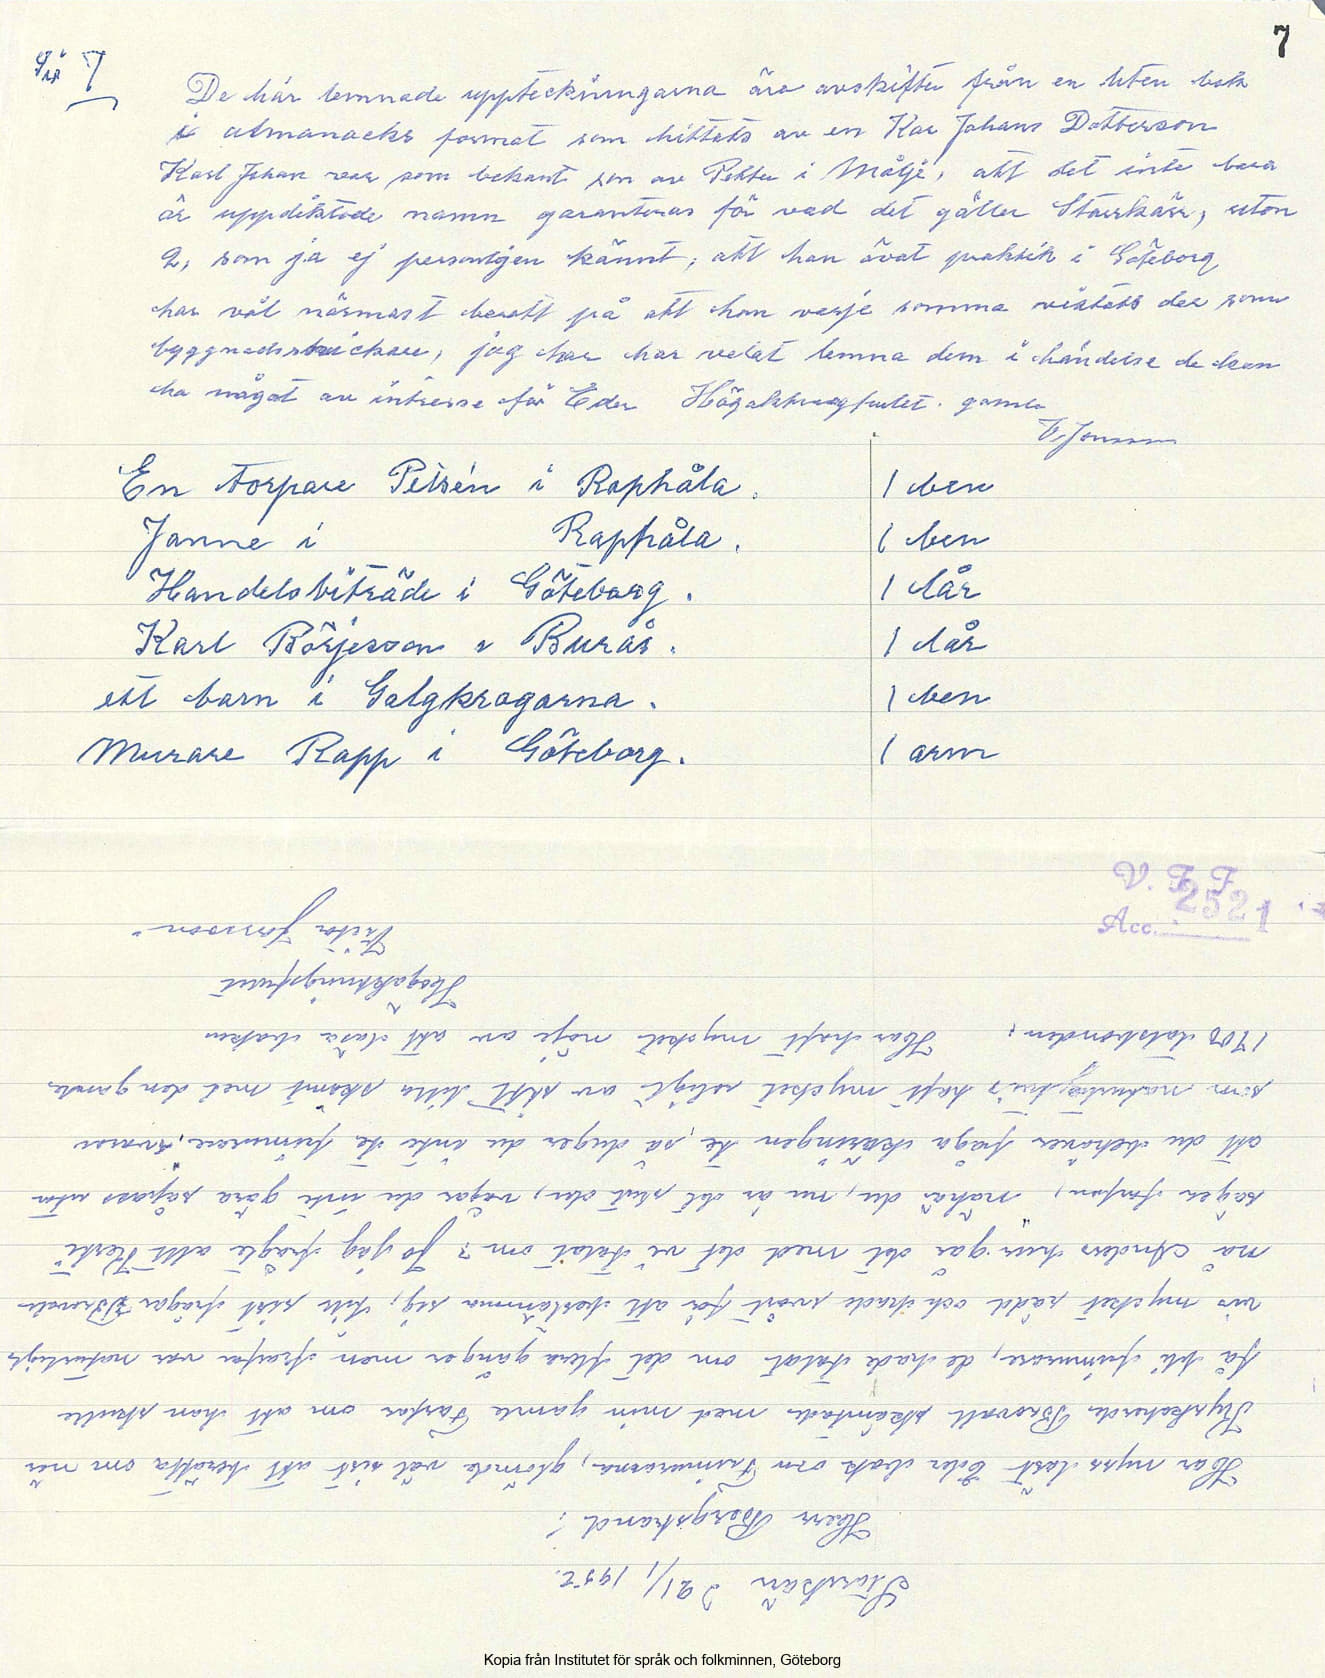 7
7
De här lemnade uppteckningarna äro avskifter från en liten bok
i almanacks format som hittats av en Kar Johans Dotterson
Karl Johan var som bekant son av Petter i Målje, att det inte bara
är uppdiktade namn garanteras för vad det gäller Starrkärr, uton
2, som ja ej personligen kännt, att han övat praktik i Göteborg
har väl närmast berott på att han varje somma vistats der som
byggnadssnickare, jag har har velat lemna dem i händelse de kan
ha något av intresse för Eder Högaktningsfullet. gamla
V. Jonsson
En torpare Peisén i Raphåla. 1 ben
Janne i Raphåla. 1 ben
Handelsbiträde i Göteborg. 1 lår
Karl Börjesson i Burås. 1 lår
ett barn i Galgkrogarna. 1 ben
Murare Rapp i Göteborg. 1 arm
V. F. F.
Acc. 2521
Starrkärr d 21/1 1952.
Herr Bergstrand!
Har nyss läst Eder bok om Frimurarna, glömde väl sist att berätta om när
Kyrkoherde Brovall skämtade med min gamle Farfar om att han skulle
få bli frimurare, de hade talat om det flera gånger men farfar var naturligts
vis mycket rädd och hade svårt för att bestämma sig, sist frågar Brovall
nå Anders hur går det med det vi talat om? Jo jag frågte allt Kersti
säger farfar, nähä du, nu är det slut der, vågar du inte göra såpass utan
att du behöver fråga käringen te, så duger du inte te frimurare, svarar
som naturligtvis haft mycket roligt av sitt lilla skämt med den gamle
1700 talsbonden; Har haft mycket nöje av att läsa boken
Högaktningsfullt
Viktor Jonsson
Kopia från Institutet för språk och folkminnen, Göteborg